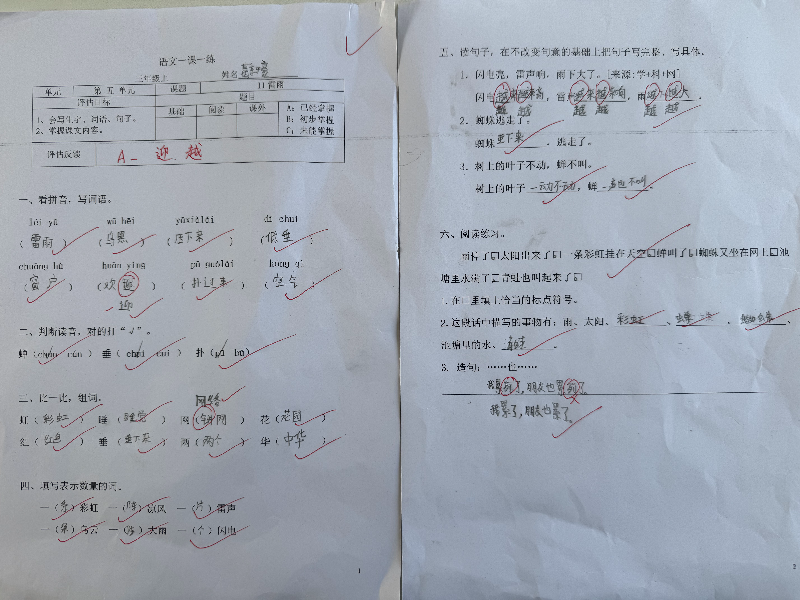 语文一课一练
年级上 姓名
单元 第五单元 课题 雷雨
评估目标 题目
1、会写生字、词语、句子。
2、掌握课文内容。
基础 阅读 课外
A：已经掌握
B：初步掌握
C：未能掌握
评估反馈 A- 迎 越
一、看拼音，写词语。
léi yǔ wū hēi yā xià lái dī chuí
（雷雨）（乌黑）（压下来）（低垂）
chuāng hù huān yíng pū guò lái kōng qì
（窗户）（欢迎）（扑过来）（空气）
迎
二、判断读音，对的打“√”。
垂（ ） 扑（ ）
三、比一比，组词。
网络
虹（彩虹） 睡（睡觉） 网（ 网） 花（花园）
红（红色） 垂（垂下来） 两（两个） 华（中华）
四、填写表示数量的词。
一（条）彩虹 一（阵）凉风 一（片）雷声
一（朵）乌云 一（阵）大雨 一（个）闪电
1
五、读句子，在不改变句意的基础上把句子写完整，写具体。
1. 闪电亮，雷声响，雨下大了。[来源:学+科+网]
闪电越来越亮，雷声越来越响，雨越下越大
越 越 越 越 越 越
2. 蜘蛛逃走了。
蜘蛛垂下来，逃走了。
3. 树上的叶子不动，蝉不叫。
树上的叶子一动不动，蝉一声也不叫。
六、阅读练习。
雨停了□太阳出来了□一条彩虹挂在天空□蝉叫了□蜘蛛又坐在网上□池
塘里水满了□青蛙也叫起来了□
1. 在□里填上恰当的标点符号。
2. 这段话中描写的事物有：雨、太阳、彩虹、蝉、蜘蛛、
池塘里的水、青蛙。
3. 造句：……也……
我累了，朋友也累了
我累了，朋友也累了。
2